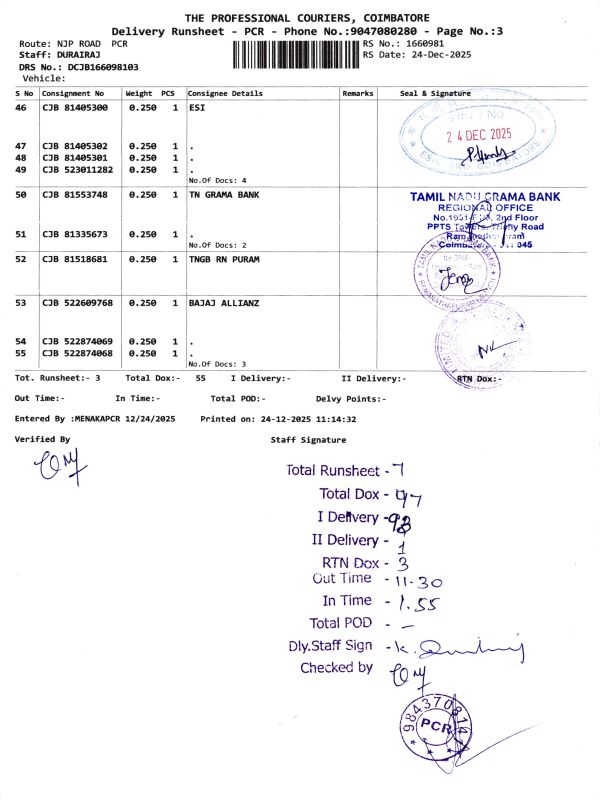 THE PROFESSIONAL COURIERS, COIMBATORE
Delivery Runsheet - PCR - Phone No.:9047080280 - Page No.:3
Route: NJP ROAD PCR
RS No.: 1660981
Staff: DURAIRAJ
RS Date: 24-Dec-2025
DRS No.: DCJB166098103
Vehicle:
S No Consignment No Weight PCS Consignee Details Remarks Seal & Signature
46 CJB 81405300 0.250 1 ESI
24 DEC 2025
47 CJB 81405302 0.250 1 .
48 CJB 81405301 0.250 1 .
49 CJB 523011282 0.250 1 .
No.Of Docs: 4
50 CJB 81553748 0.250 1 TN GRAMA BANK
TAMIL NADU GRAMA BANK
REGIONAL OFFICE
2nd Floor
PPTS Road
51 CJB 81335673 0.250 1 .
045
No.Of Docs: 2
52 CJB 81518681 0.250 1 TNGB RN PURAM
53 CJB 522609768 0.250 1 BAJAJ ALLIANZ
54 CJB 522874069 0.250 1 .
55 CJB 522874068 0.250 1 .
No.Of Docs: 3
Tot. Runsheet:- 3 Total Dox:- 55 I Delivery:- II Delivery:- RTN Dox:-
Out Time:- In Time:- Total POD:- Delvy Points:-
Entered By :MENAKAPCR 12/24/2025 Printed on: 24-12-2025 11:14:32
Verified By Staff Signature
Total Runsheet - 7
Total Dox - 97
I Delivery - 93
II Delivery - 1
RTN Dox - 3
Out Time - 11-30
In Time - 1.55
Total POD - -
Dly.Staff Sign - K.
Checked by
PCR